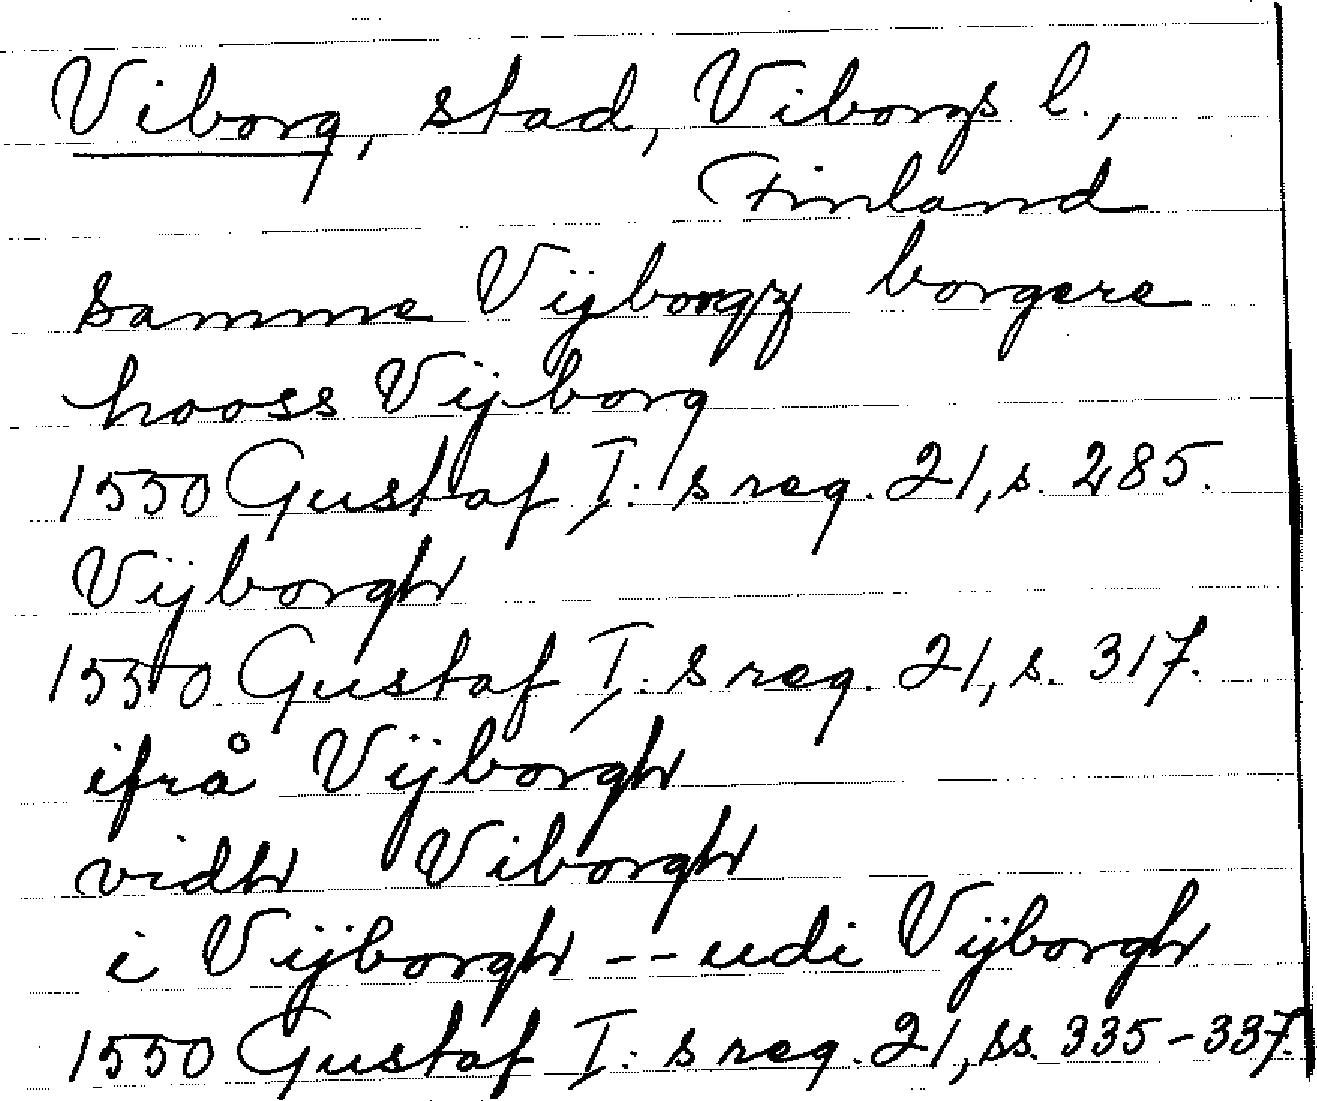 Viborg, stad, Viborgs l.,
Finland
samme Vijborgz borgere
hooss Vijborg
1550 Gustaf I:s reg. 21, s. 285.
Vijborgh
1550 Gustaf I:s reg. 21, s. 317.
ifrå Vijborgh
vidh Viborgh
i Vijborgh -- udi Vijborgh
1550 Gustaf I:s reg. 21, ss. 335-337.